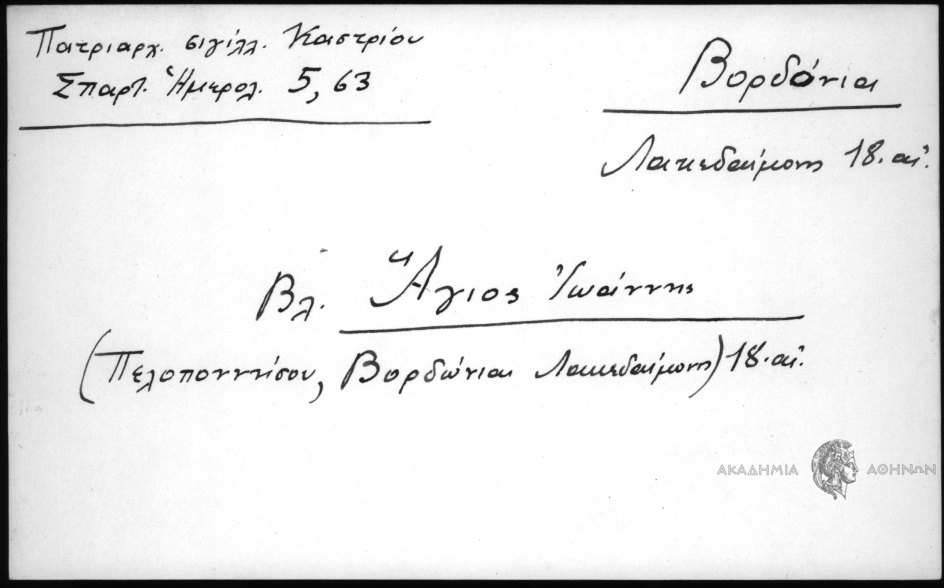 Πατριαρχ. σιγίλλ. Καστρίου
Σπαρτ. Ἡμερολ. 5, 63
Βορδόνια
Λακεδαίμονος 18. αἰ.
Βλ. Ἅγιος Ἰωάννης
(Πελοποννήσου, Βορδώνια Λακεδαίμονος) 18. αἰ.
ΑΚΑΔΗΜΙΑ ΑΘΗΝΩΝ